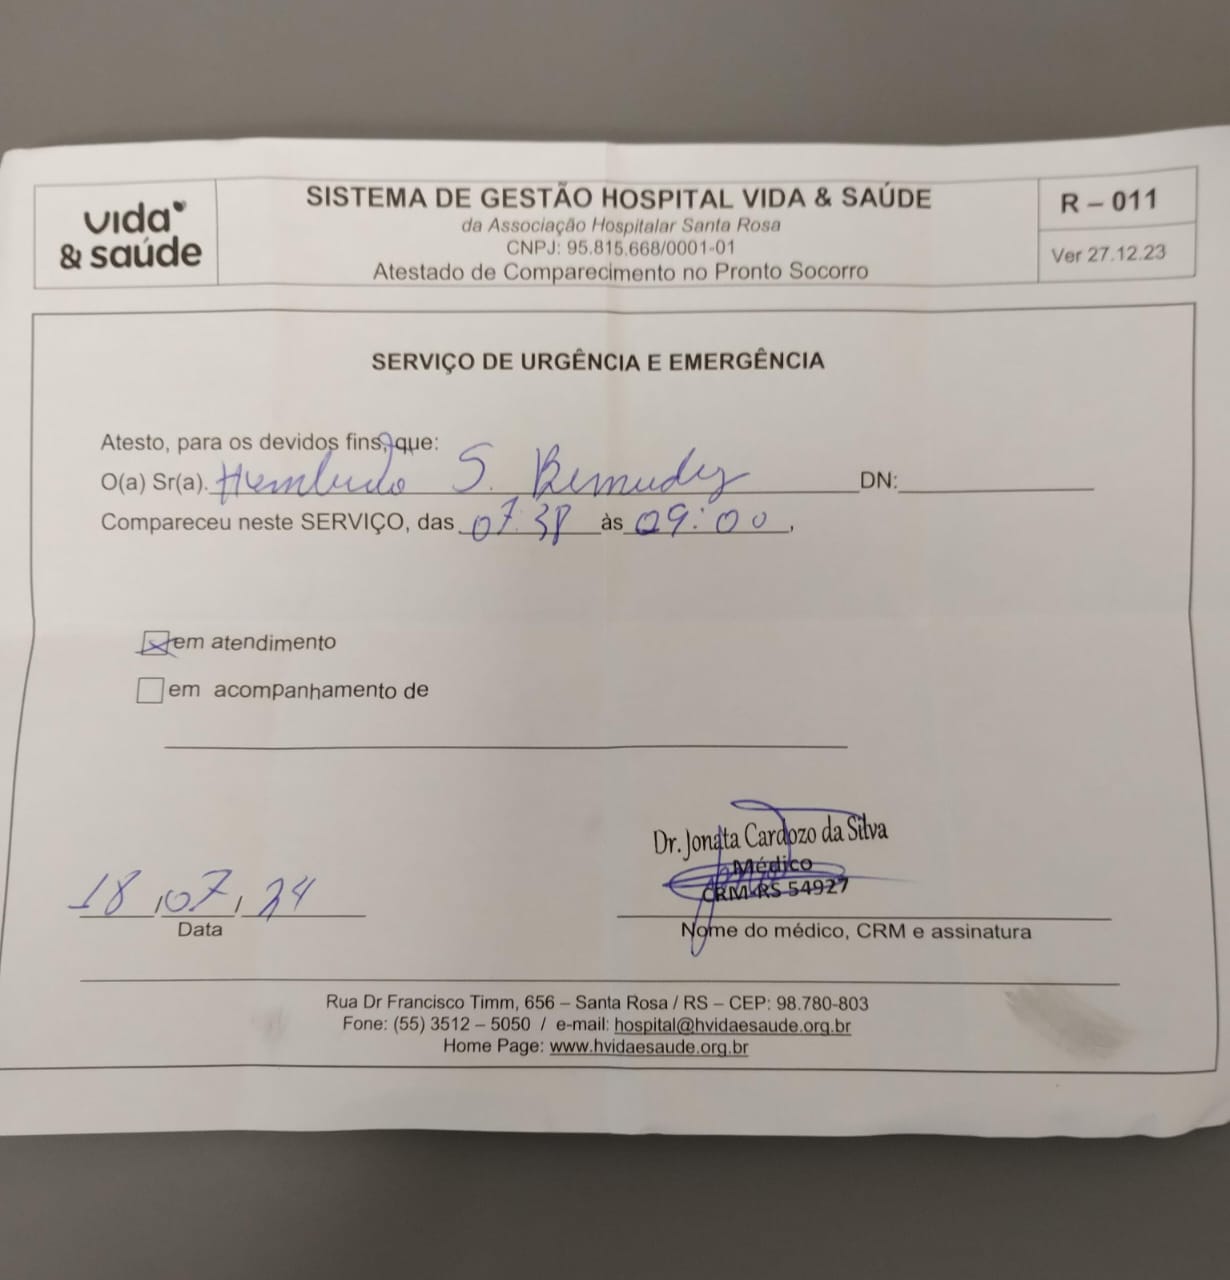 vida
& saúde
SISTEMA DE GESTÃO HOSPITAL VIDA & SAÚDE
da Associação Hospitalar Santa Rosa
CNPJ: 95.815.668/0001-01
Atestado de Comparecimento no Pronto Socorro
R – 011
Ver 27.12.23
SERVIÇO DE URGÊNCIA E EMERGÊNCIA
Atesto, para os devidos fins, que:
O(a) Sr(a). S. DN:
Compareceu neste SERVIÇO, das 07:38 às 09:00,
em atendimento
em acompanhamento de
Dr. Jonata Cardozo da Silva
Médico
CRM-RS 54927
18/07/24
Data
Nome do médico, CRM e assinatura
Rua Dr Francisco Timm, 656 – Santa Rosa / RS – CEP: 98.780-803
Fone: (55) 3512 – 5050 / e-mail: hospital@hvidaesaude.org.br
Home Page: www.hvidaesaude.org.br